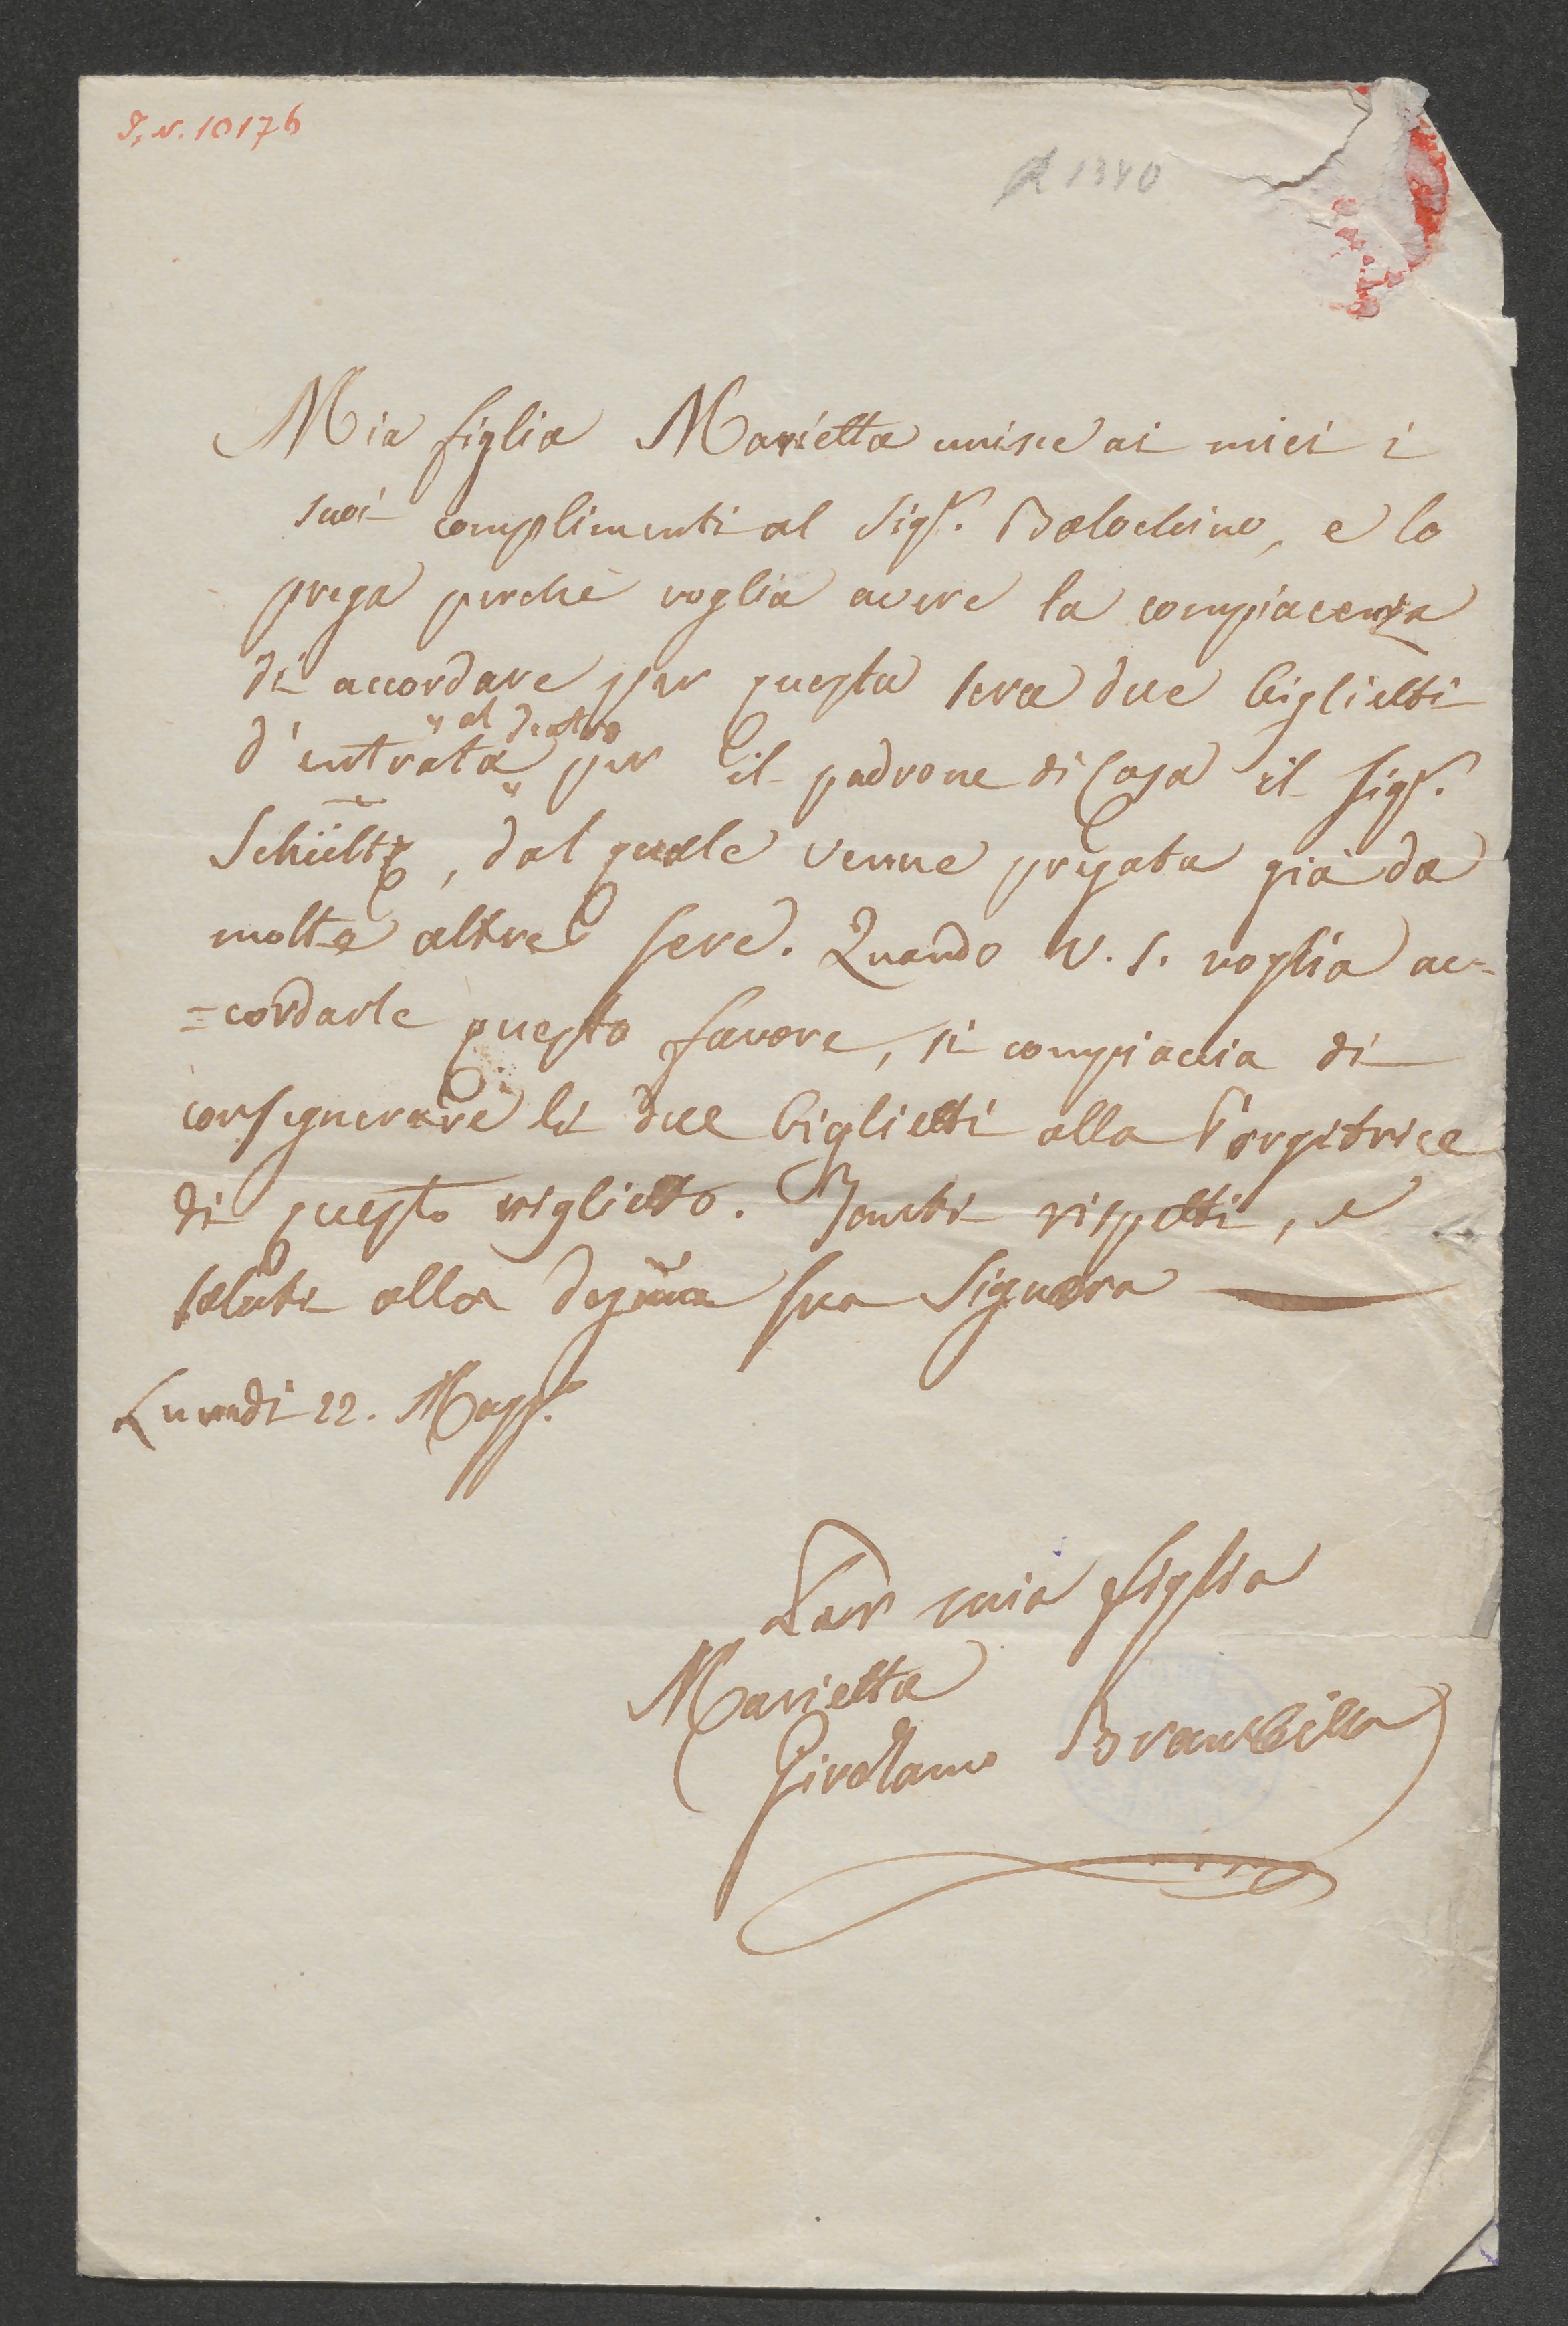 I. N. 10176
R 1340
Mia figlia Marietta unisce ai miei i
suoi complimenti al Sigr. Balochino, e lo
prega perchè voglia avere la compiacenza
di accordare per questa sera due biglietti
" al Teatro
d'entrata " per il padrone di Casa il Sigr.
Schültz, dal quale venne pregata già da
molte altre sere. Quando V. S. voglia ac-
=cordarle questo favore, si compiaccia di
consegnerare li due biglietti alla Porgitrice
di questo viglietto. Tanti rispetti, e
saluti alla degna sua Signora
Lunedi 22. Magg.
Par mia figlia
Marietta
Girolamo Brambilla